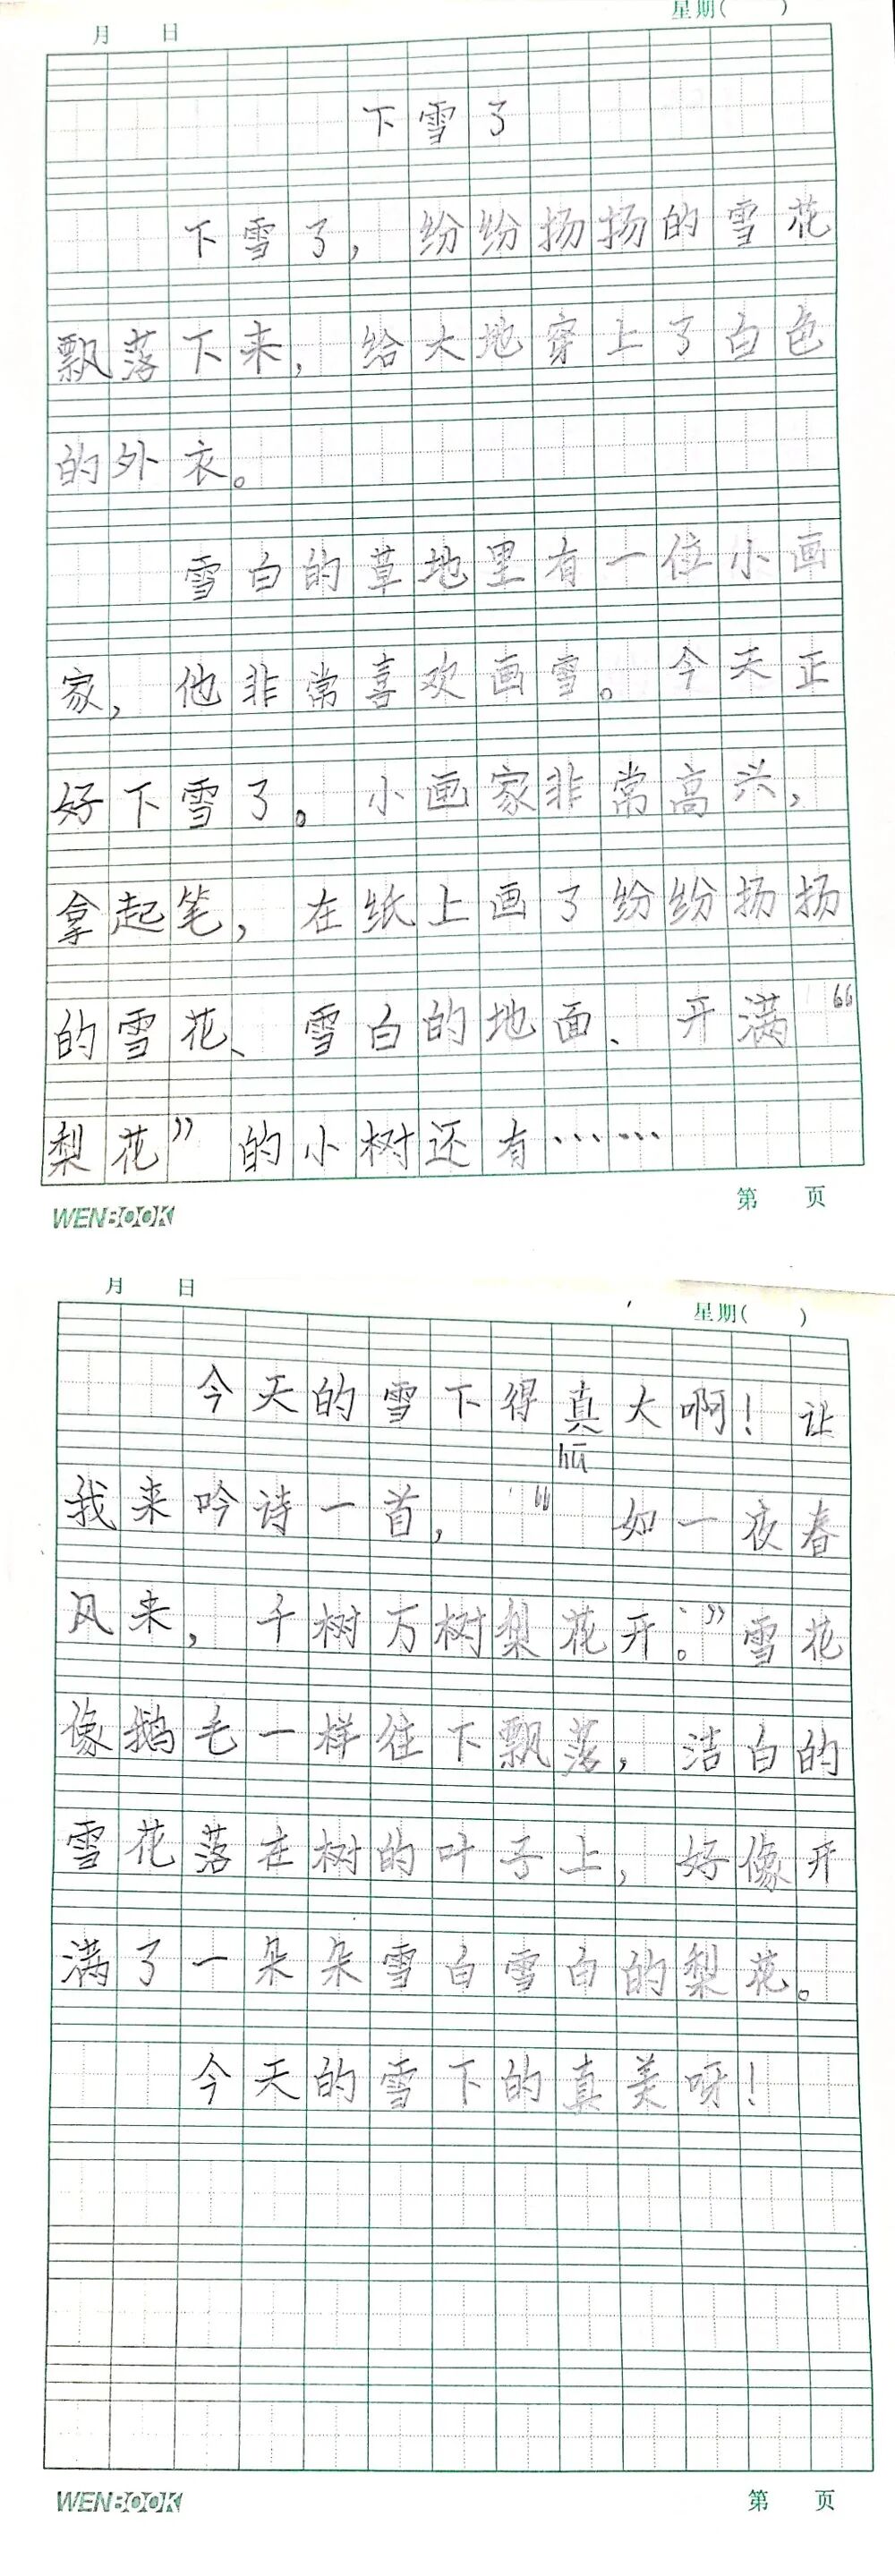 月 日 星期( )
下雪了
下雪了，纷纷扬扬的雪花
飘落下来，给大地穿上了白色
的外衣。
雪白的草地里有一位小画
家，他非常喜欢画雪。今天正
好下雪了。小画家非常高兴，
拿起笔，在纸上画了纷纷扬扬
的雪花、雪白的地面、开满“
梨花”的小树还有……
WENBOOK 第 页
月 日 星期( )
今天的雪下得真大啊！让
hū
我来吟诗一首，“ 如一夜春
风来，千树万树梨花开。”雪花
像鹅毛一样往下飘落，洁白的
雪花落在树的叶子上，好像开
满了一朵朵雪白雪白的梨花。
今天的雪下的真美呀！
WENBOOK 第 页